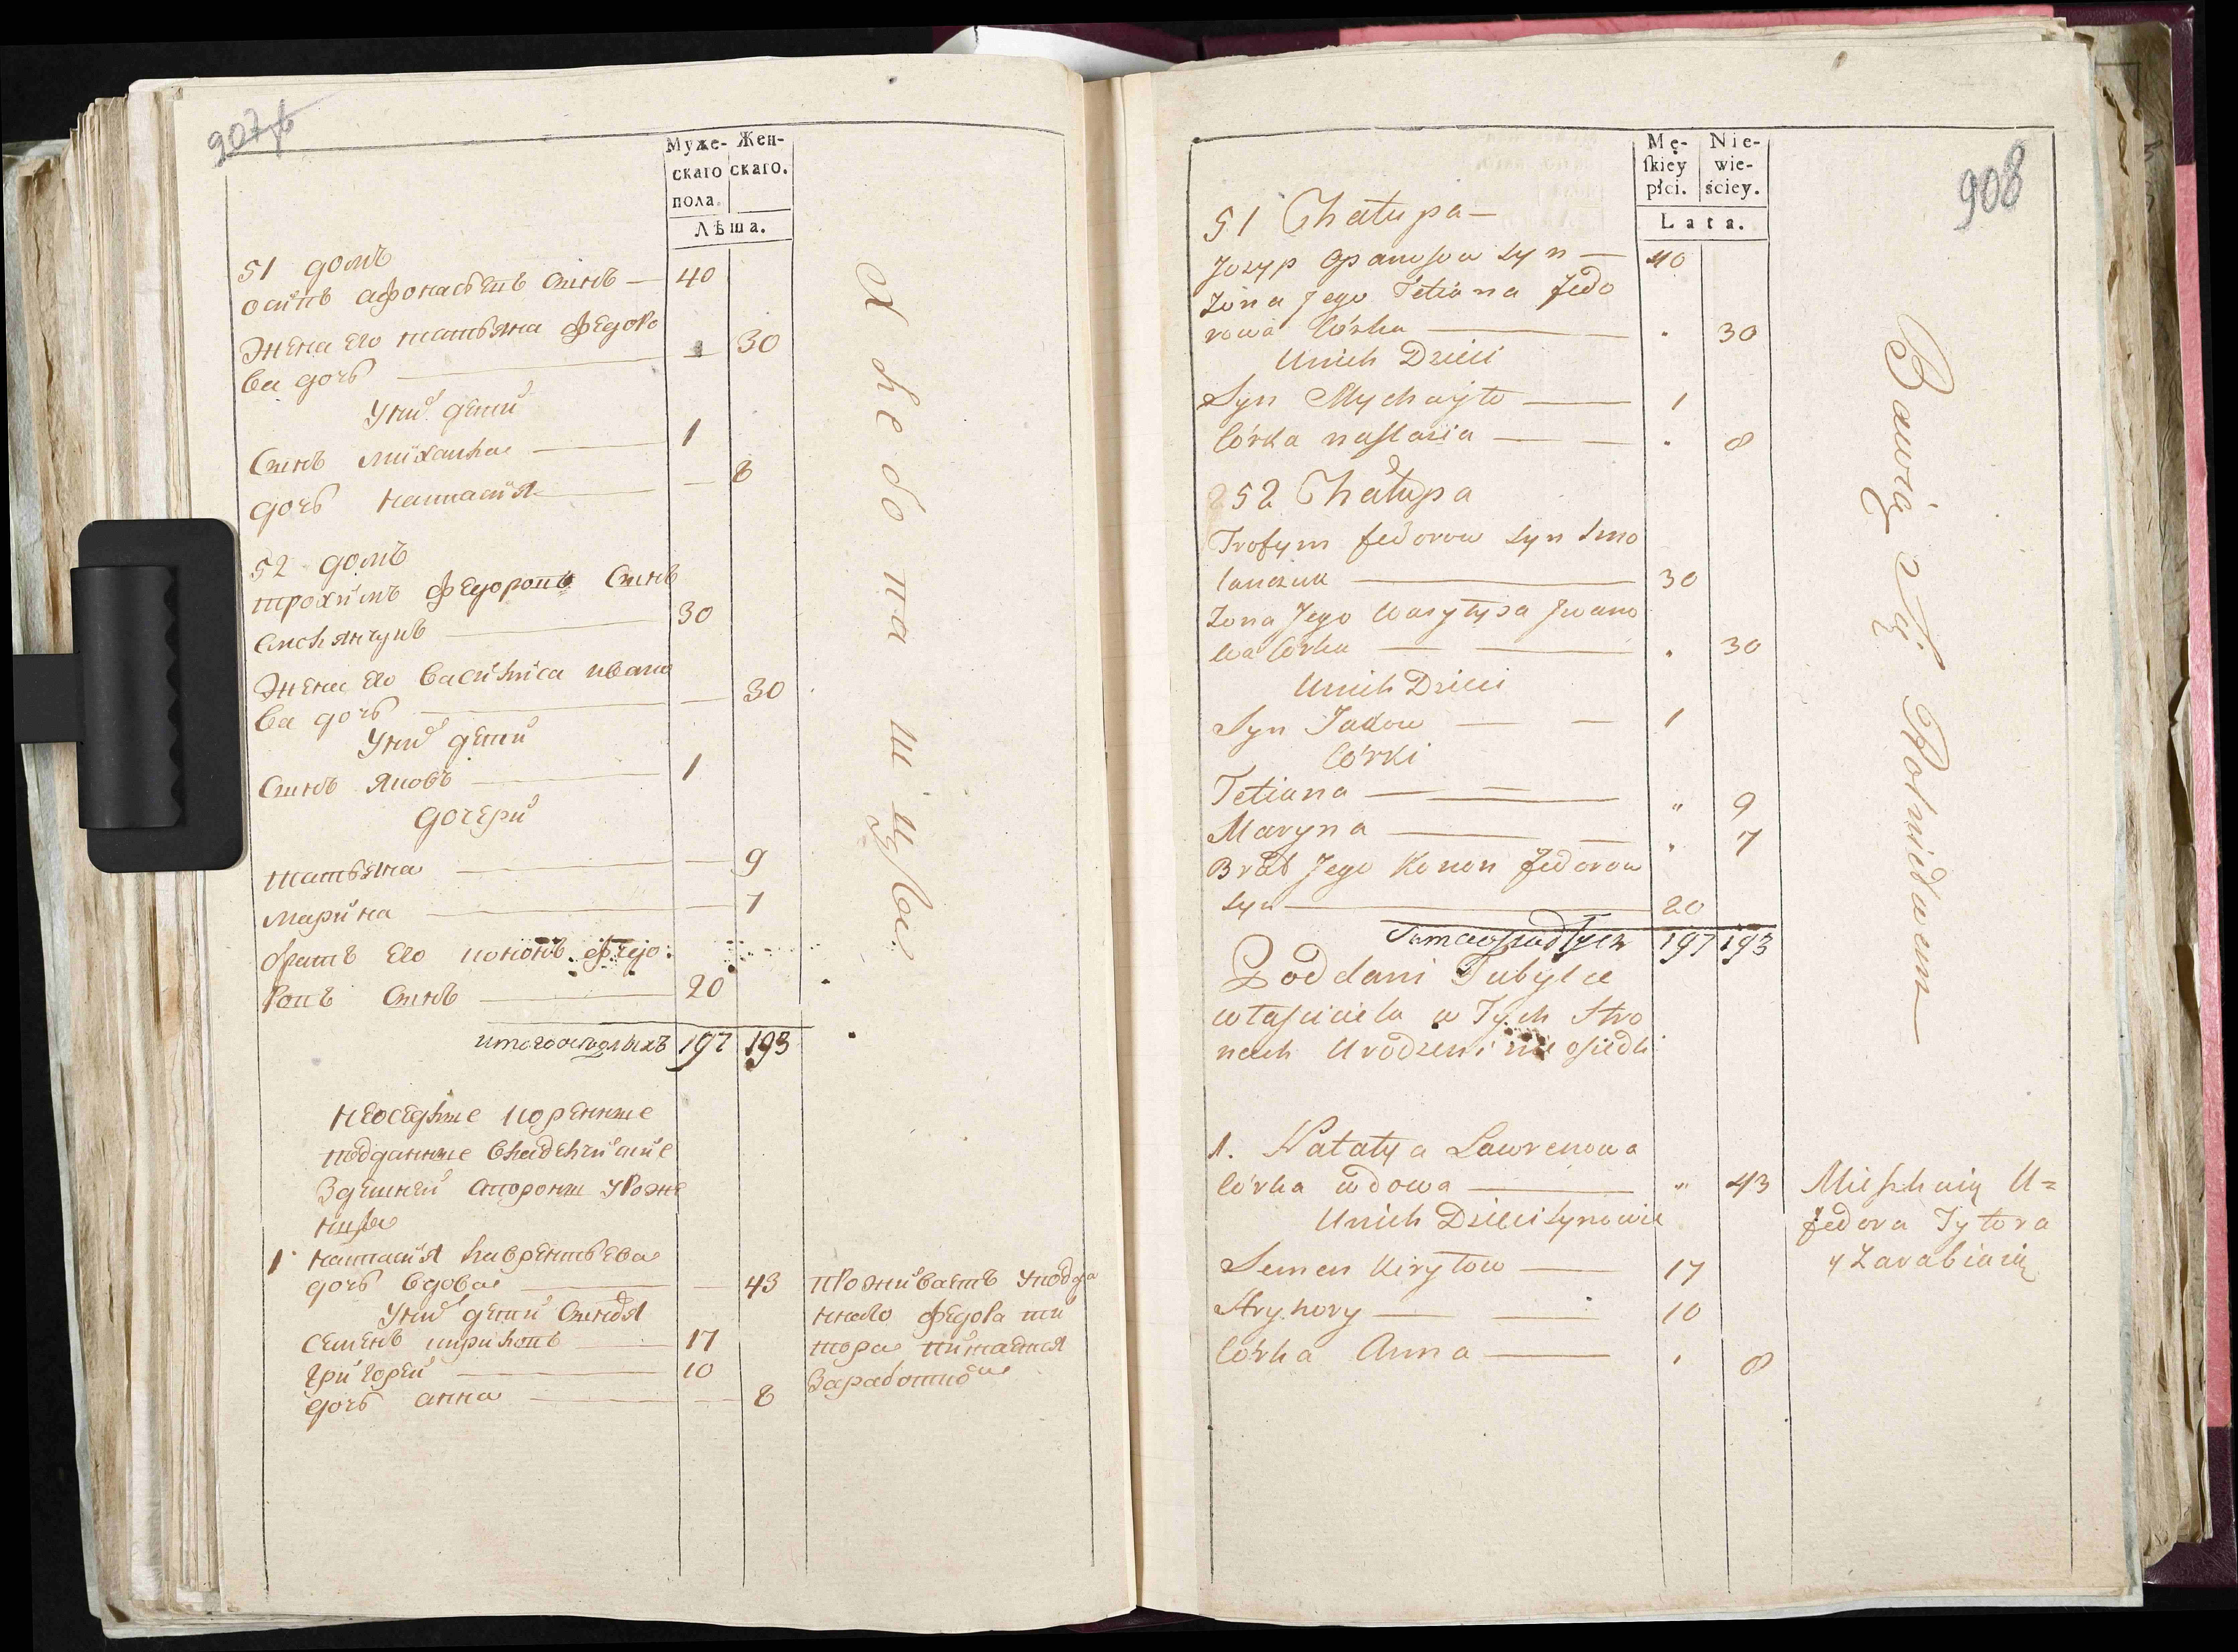 907об
Муже- Жен-
скаго скаго.
пола.
Лѣта.
51 домъ
осипъ афонасьевъ сынъ — 40
жена его татьяна федоро
ва дочь — 30
У них дети
Сынъ михаила — 1
дочь настасия — 8
52 домъ
трохимъ федоровъ Сынъ
смолянчукъ — 30
жена его василиса ивано
ва дочь — 30
У них дети
Сынъ яковъ — 1
дочери
татьяна — 9
марина — 7
братъ его кононъ федо:
ровъ Сынъ — 20
итого оседлыхъ 197 193
неоседлые коренные
подданные владельческие
здешней стороны урожен
нцы
1 настасия лаврентьева
дочь вдова — 43
У них дети Сыновя
семенъ кириловъ — 17
григорей — 10
дочь анна — 8
Хлебопашцы
проживаетъ у подда
ннаго федора ти
тора питается
заработкой
908
Mę- Nie-
skiey wie-
płci. ściey.
Lata.
51 Chałupa —
Jozyp Opanasow syn — 40
Zona Jego Tetiana fedo
rowa Córka — 30
Unich Dzieci
Syn Mychayło — 1
Córka nastazia — 8
52 Chałupa
Trofym fedorow syn smo
lanczuk — 30
Zona Jego Wasylysa Jwano
wa Córka — 30
Unich Dzieci
Syn Jakow — 1
Córki
Tetiana — 9
Maryna — 7
Brat Jego Konon fedorow
syn — 20
Suma osiadłych 197 193
Poddani Tubylce
własciciela w Tych Stro
nach Urodzeni nie osiedli
1. Natalya Lawrenowa
Córka wdowa — 43
Unich Dzieci synowie
Semen Kiryłow — 17
Hryhory — 10
Córka Anna — 8
Bawią Się Rolnictwem
Mieszkaią U=
fedora Tytora
y Zarabiaią